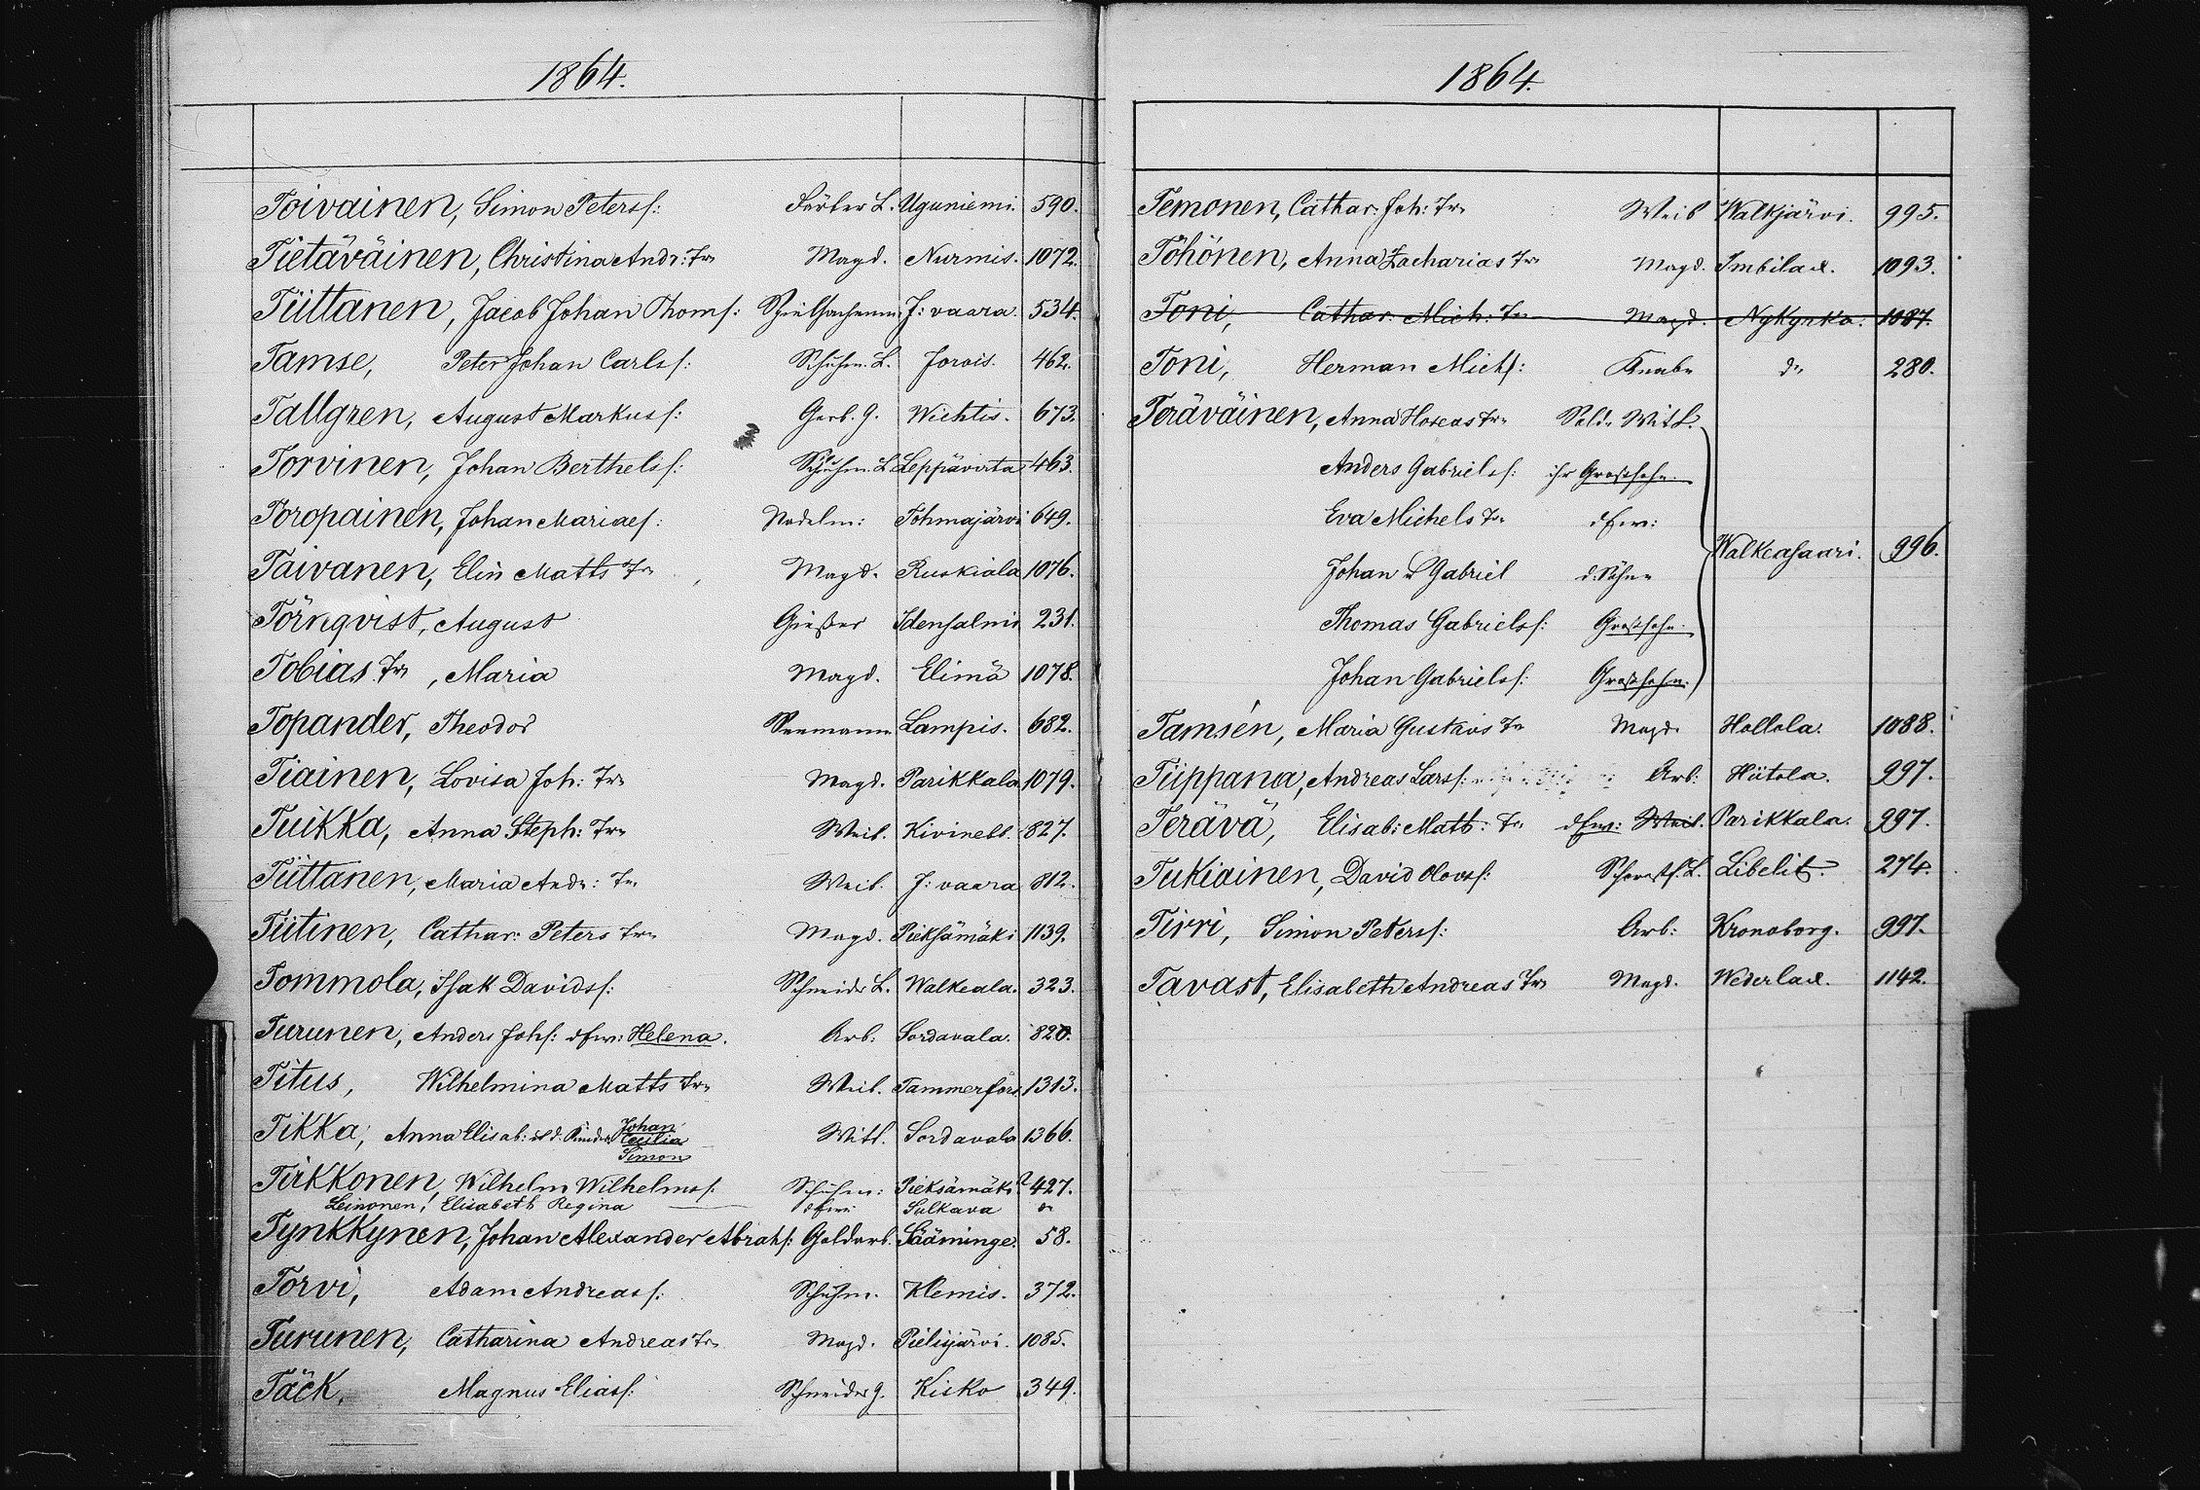 1864.
Toivainen, Simon Peterss: Färber L. Uguniemi. 590.
Tietäväinen, Christina Andr: Tr Magd. Nurmis. 1072.
Tiittanen, Jacob Johan Thoms: J: vaara. 534.
Tamse, Peter Johan Carlss: Schuhm. L. Jorois. 462.
Tallgren, August Markuss: Gerb. G. Wichtis. 673.
Torvinen, Johan Berthelss: Schuhm. L. Leppävirta 463.
Poropainen, Johan Mariaes: Nadelm: Tohmajärvi 649.
Taivanen, Elin Matts Tr Magd. Ruskiala 1076.
Törnqvist, August Gießer Idensalmi 231.
Tobias Tr, Maria Magd. Elimä 1078.
Topander, Theodor Seemann Lampis. 682.
Tiainen, Lovisa Joh: Tr Magd. Parikkala 1079.
Tuikka, Anna Steph: Tr Weib. Kivinebb. 827.
Tiittanen, Maria Andr: Tr Weib. J: vaara 812.
Tiitinen, Cathar: Peters Tr Magd. Pieksämäki 1139.
Tommola, Isak Davidss: Schneider L. Walkeala. 323.
Turunen, Anders Johs: d fr: Helena. Arb: Sordavala. 820.
Titus, Wilhelmina Matts Tr Weib. Tammerfors 1313.
Tikka, Anna Elisab: u d. Kinder Johan Cecilia Simon Witt. Sordavala 1366.
Tirkkonen, Wilhelm Wilhelmss. Schuhm: Pieksämäki 427.
Leinonen! Elisabeth Regina d fr: Sulkava
Tynkkynen, Johan Alexander Abrahs: Goldarb. Sääminge. 58.
Torvi, Adam Andreass: Schuhm. Klemis. 372.
Turunen, Catharina Andreas Tr Magd. Pielisjärvi. 1085.
Täck, Magnus Eliass: Schneider G. Kisko 349.
1864.
Temonen, Cathar. Joh: Tr Weib Walkjärvi. 995.
Töhönen, Anna Zacharias Tr Magd. Imbilax. 1093.
Toni, Cathar. Mich: Tr Magd. Nykyrka. 1087.
Toni, Herman Michs: Knabe do 280.
Teräväinen, Anna Hoseas Tr Sold. Witt.
Anders Gabrielss: ihr Großsohn.
Eva Michels Tr d fr:
Johan u Gabriel d. Söhne Walkeasaari. 996.
Thomas Gabrielss: Großsohn.
Johan Gabrielss: Großsohn.
Tamsén, Maria Gustavs Tr Magd. Hollola. 1088.
Tiippana, Andreas Larss: Arb: Hiitola. 997.
Terävä, Elisab: Matt: Tr d fr: Weib. Parikkala. 997.
Tukiainen, David Olovss: Libelits. 274.
Tirri, Simon Peterss: Arb: Kronoborg. 997.
Tavast, Elisabeth Andreas Tr Magd. Wederlax. 1142.